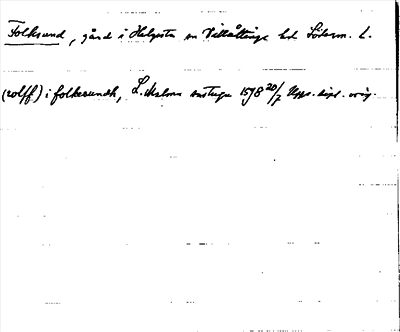 Folksund, gård i Helgesta sn Villåttinge hd Söderm. l.
(rolff) i folkesundh, L. Malms 1578 20/7 Upps. dipl. orig.